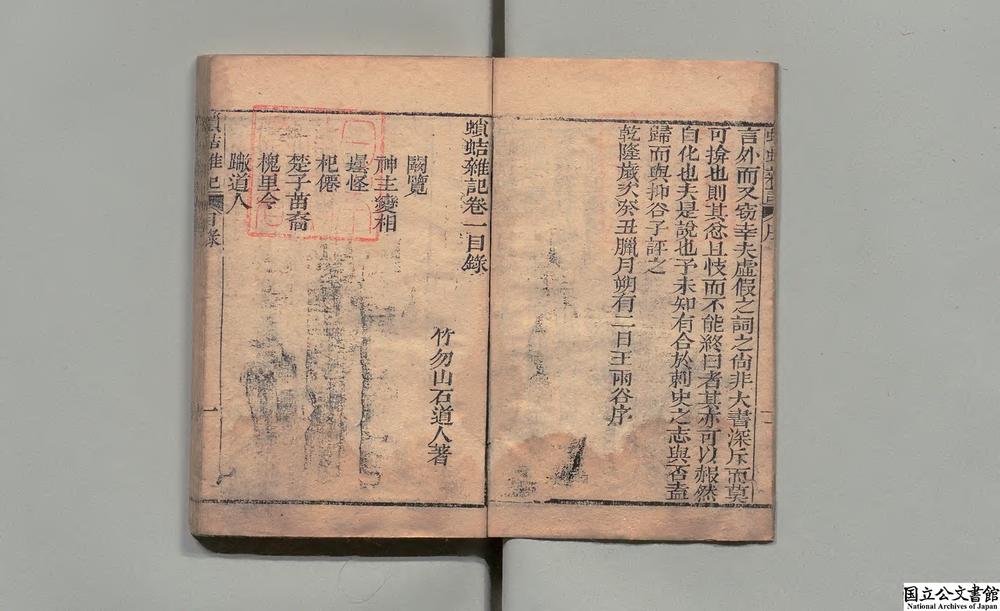 言外而又窃幸夫虛假之詞之尙非大書深斥而莫
可揜也則其忿且忮而不能終日者其亦可以赧然
自化也夫是說也予未知有合於刺史之志與否盍
歸而與抑谷子訂之
乾隆歲次癸丑臘月朔有二日王雨谷序
蝜蛣雜記卷一目錄
竹勿山石道人著
闚覽
神主變相
曇怪
杞僊
楚子苗裔
槐里令
蹴道人
目錄
一
国立公文書館
National Archives of Japan